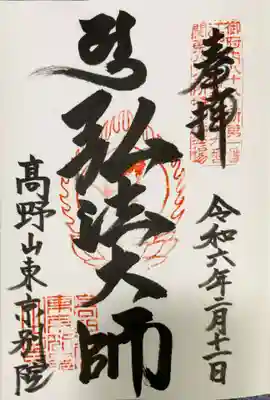 奉拝
令和六年二月十一日
弘法大師
高野山東京別院